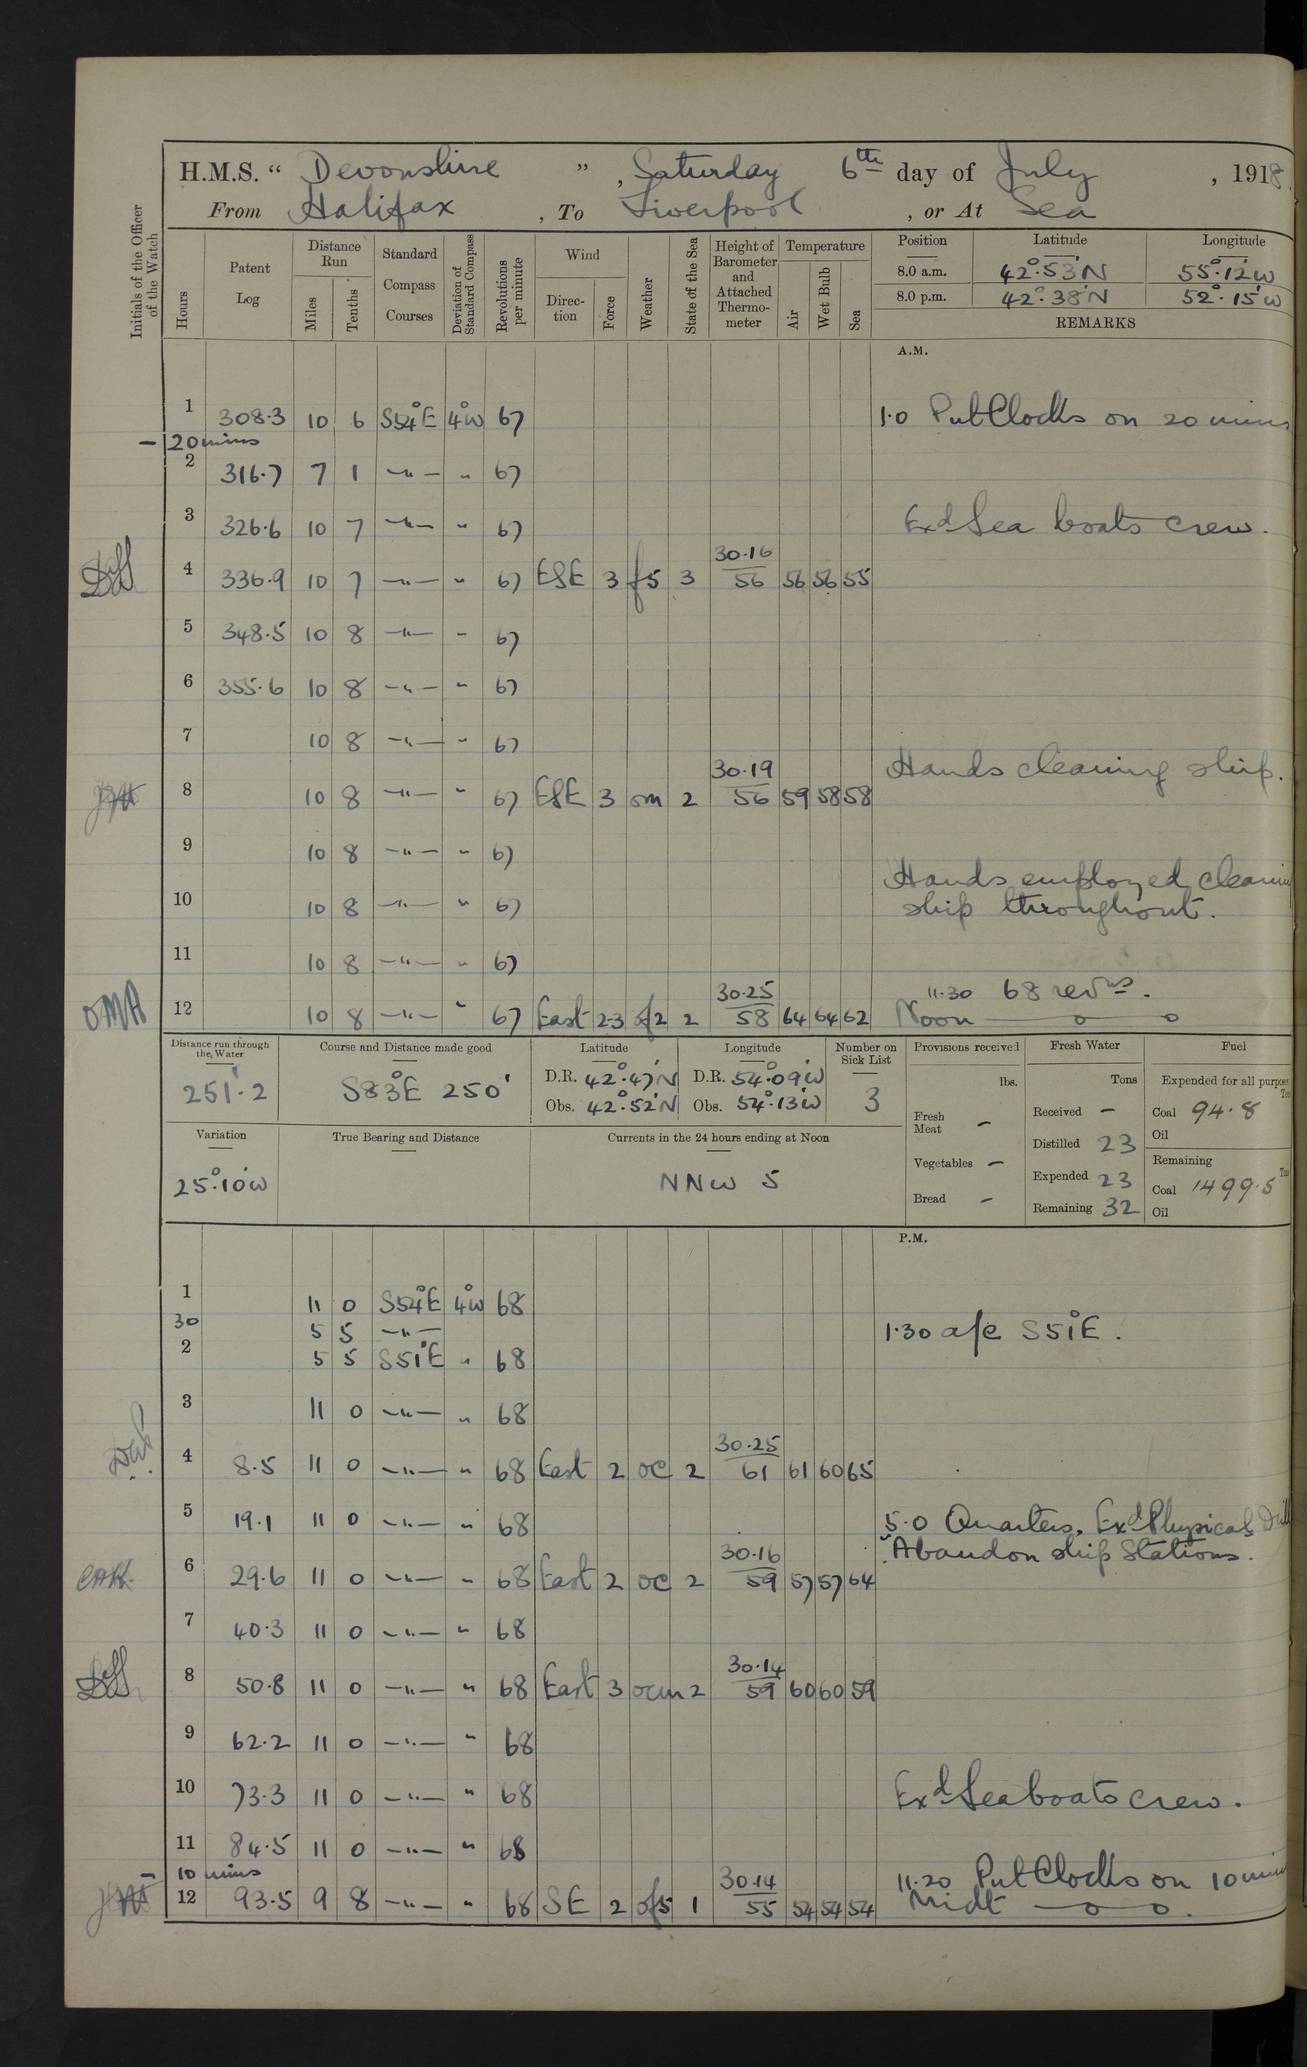 H.M.S. " Devonshire " , Saturday 6th day of July , 1918.
From Halifax , To Liverpool , or At Sea
Initials of the Officer of the Watch
Hours
Patent Log
Distance Run
Miles
Tenths
Standard Compass Courses
Deviation of Standard Compass
Revolutions per minute
Wind
Direction
Force
Weather
State of the Sea
Height of Barometer and Attached Thermometer
Temperature
Air
Wet Bulb
Sea
Position Latitude Longitude
8.0 a.m. 42°.53'N 55°.12'W
8.0 p.m. 42°.38'N 52°.15'W
REMARKS
A.M.
1 308.3 10 6 S54°E 4°W 67 1.0 Put Clocks on 20 mins
- 20 mins
2 316.7 7 1 —"— " 67
3 326.6 10 7 —"— " 67 Exd Sea boats crew.
4 336.9 10 7 —"— " 67 ESE 3 f5 3 30.16 56 56 56 55
5 348.5 10 8 —"— " 67
6 355.6 10 8 —"— " 67
7 10 8 —"— " 67
Hands cleaning ship.
8 10 8 —"— " 67 ESE 3 om 2 30.19 56 59 58 58
9 10 8 —"— " 67
Hands employed cleaning
10 10 8 —"— " 67 ship throughout.
11 10 8 —"— " 67
11.30 68 revns.
OMA 12 10 8 —"— " 67 East 2-3 of2 2 30.25 58 64 64 62 Noon — o — o
Distance run through the Water
251'.2
Course and Distance made good
S83°E 250'
Latitude
D.R. 42°.47'N
Obs. 42°.52'N
Longitude
D.R. 54°.09'W
Obs. 54°.13'W
Number on Sick List
3
Variation
25°.10'W
True Bearing and Distance
Currents in the 24 hours ending at Noon
NNW 5
Provisions received
lbs.
Fresh Meat -
Vegetables -
Bread -
Fresh Water
Tons
Received -
Distilled 23
Expended 23
Remaining 32
Fuel
Expended for all purposes
Tons
Coal 94.8
Oil
Remaining
Tons
Coal 1499.5
Oil
P.M.
1 11 0 S54°E 4°W 68
30 5 5 —"— 1.30 a/c S51°E.
2 5 5 S51°E " 68
3 11 0 —"— " 68
4 8.5 11 0 —"— " 68 East 2 oc 2 30.25 61 61 60 65
5 19.1 11 0 —"— " 68 5.0 Quarters, Exd Physical Drill
Abandon ship Stations.
CAH. 6 29.6 11 0 —"— " 68 East 2 oc 2 30.16 59 57 57 64
7 40.3 11 0 —"— " 68
8 50.8 11 0 —"— " 68 East 3 ocm 2 30.14 59 60 60 59
9 62.2 11 0 —"— " 68
10 73.3 11 0 —"— " 68 Exd Sea boats crew.
11 84.5 11 0 —"— " 68
- 10 mins 11.20 Put Clocks on 10 mins
12 93.5 9 8 —"— " 68 SE 2 of5 1 30.14 55 54 54 54 Midt — o — o.